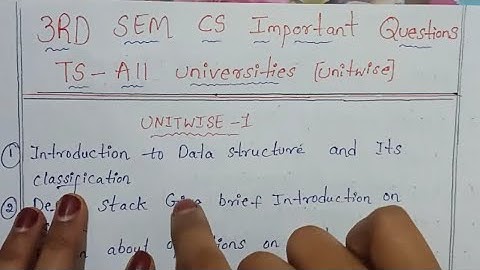 3RD SEM CS Important Questions
TS-All universities [unitwise]
UNITWISE-1
① Introduction to Data structure and Its
classification
② stack Give brief Introduction on
about on